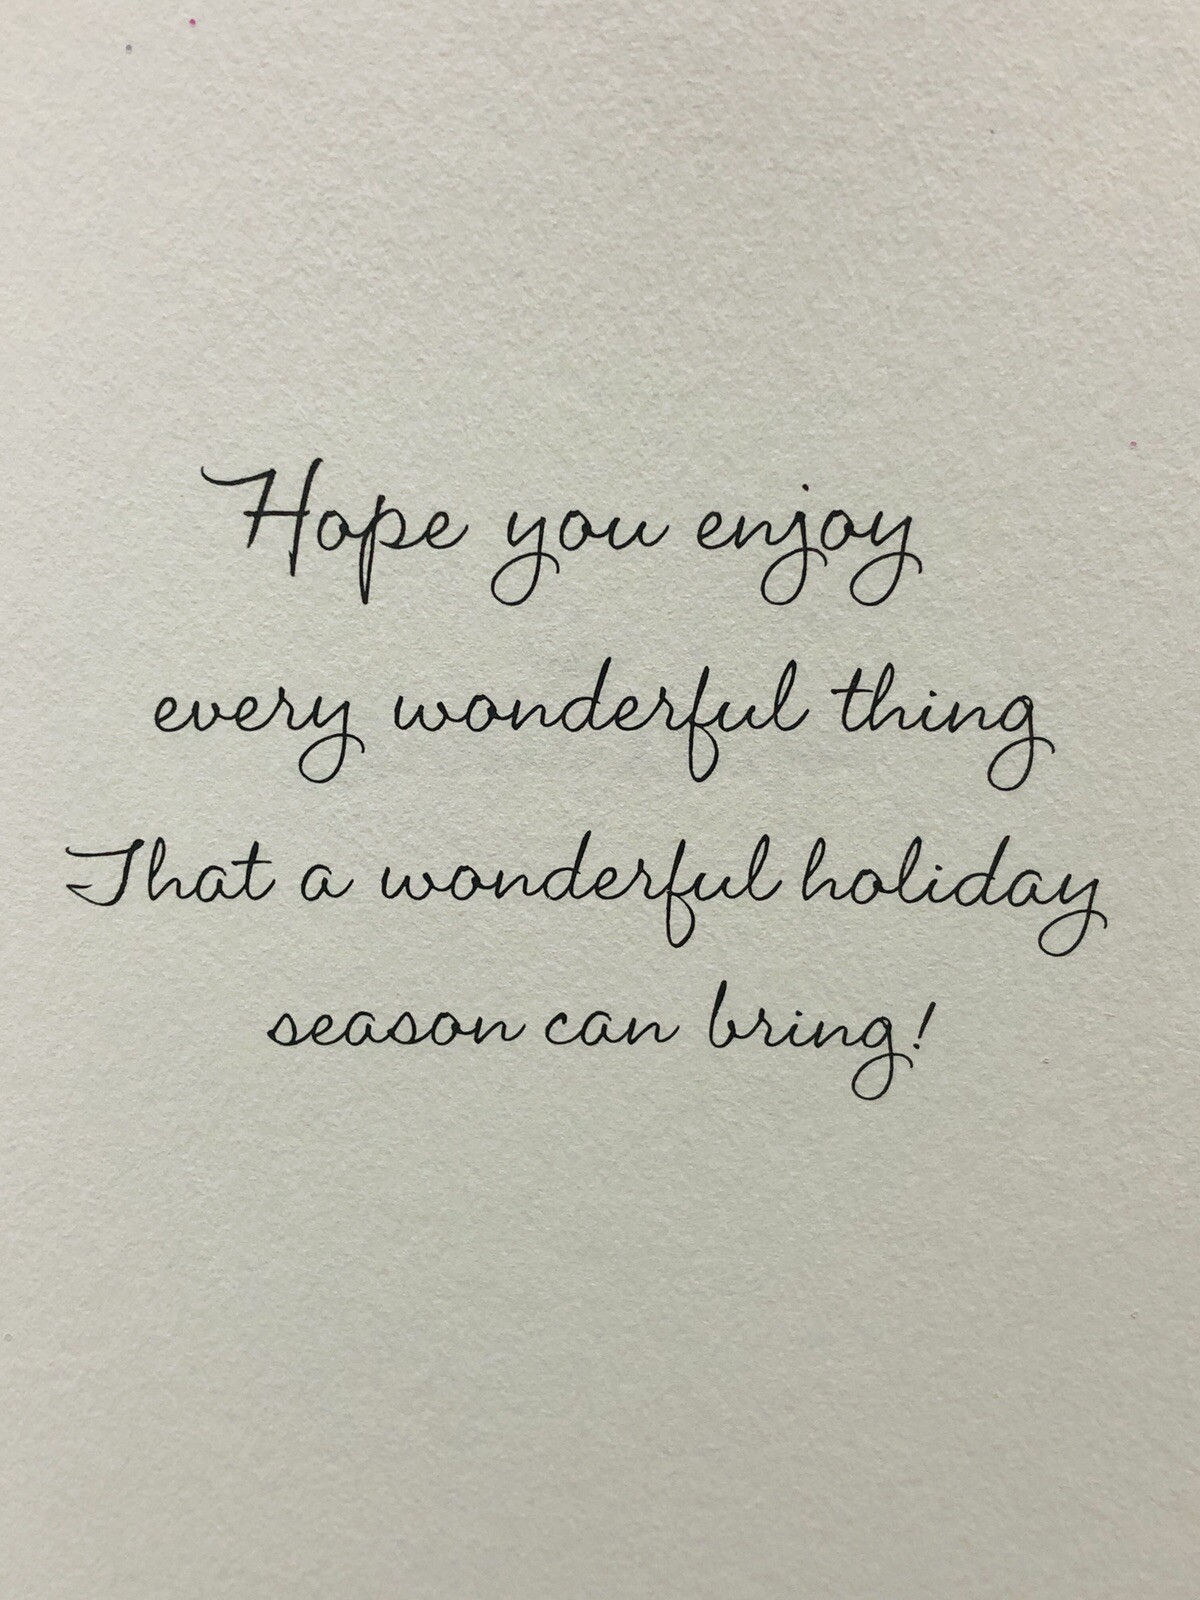 Hope you enjoy
every wonderful thing
That a wonderful holiday
season can bring!